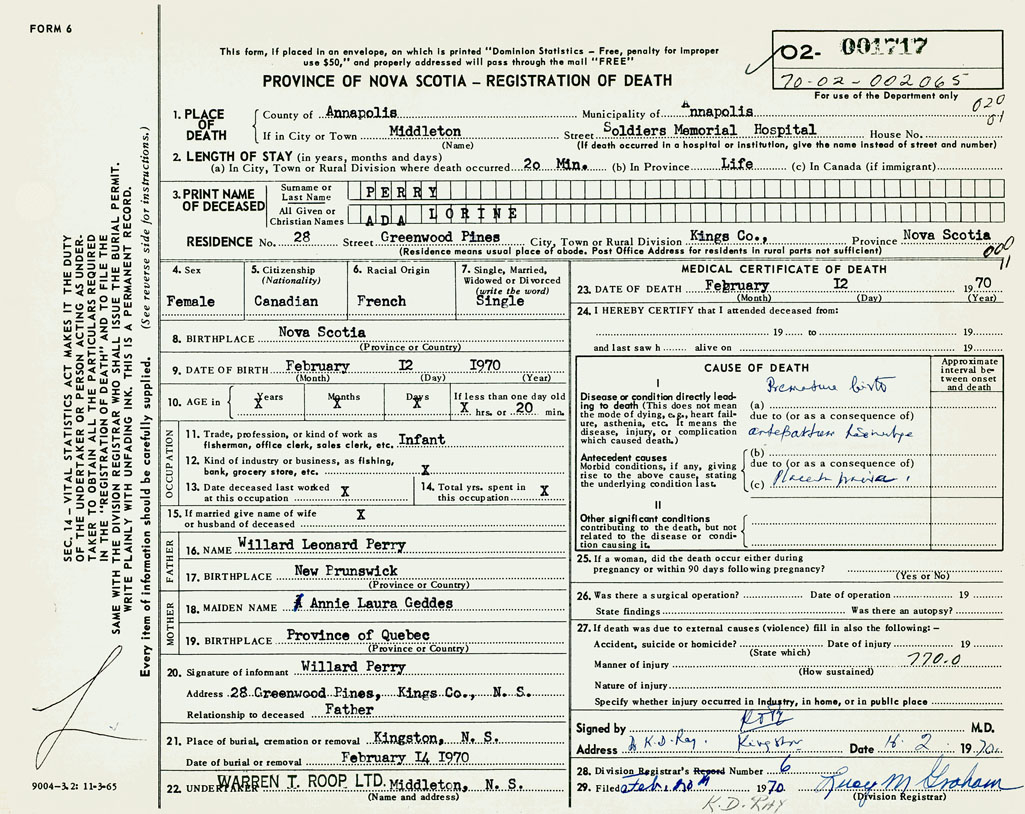 FORM 6
This form, if placed in an envelope, on which is printed "Dominion Statistics – Free, penalty for improper
use $50," and properly addressed will pass through the mail "FREE"
PROVINCE OF NOVA SCOTIA – REGISTRATION OF DEATH
02- 001717
70-02-002065
For use of the Department only
020
01
1. PLACE OF DEATH
County of Annapolis Municipality of Annapolis
If in City or Town Middleton Street Soldiers Memorial Hospital House No.
(Name) (If death occurred in a hospital or institution, give the name instead of street and number)
2. LENGTH OF STAY (in years, months and days)
(a) In City, Town or Rural Division where death occurred 20 Min. (b) In Province Life (c) In Canada (if immigrant)
3. PRINT NAME OF DECEASED
Surname or Last Name PERRY
All Given or Christian Names ADA LORINE
RESIDENCE No. 28 Street Greenwood Pines City, Town or Rural Division Kings Co., Province Nova Scotia
(Residence means usual place of abode. Post Office Address for residents in rural parts not sufficient)
000
11
4. Sex
Female
5. Citizenship
(Nationality)
Canadian
6. Racial Origin
French
7. Single, Married,
Widowed or Divorced
(write the word)
Single
8. BIRTHPLACE Nova Scotia
(Province or Country)
9. DATE OF BIRTH February I2 I970
(Month) (Day) (Year)
10. AGE in Years X Months X Days X If less than one day old
X hrs. or 20 min.
OCCUPATION
11. Trade, profession, or kind of work as
fishermen, office clerk, sales clerk, etc. Infant
12. Kind of industry or business, as fishing,
bank, grocery store, etc. X
13. Date deceased last worked
at this occupation X
14. Total yrs. spent in
this occupation X
15. If married give name of wife
or husband of deceased X
FATHER
16. NAME Willard Leonard Perry
17. BIRTHPLACE New Prunswick
(Province or Country)
MOTHER
18. MAIDEN NAME Annie Laura Geddes
19. BIRTHPLACE Province of Quebec
(Province or Country)
20. Signature of informant Willard Perry
Address 28 Greenwood Pines, Kings Co., N. S.
Relationship to deceased Father
21. Place of burial, cremation or removal Kingston, N. S.
Date of burial or removal February I4 I970
22. UNDERTAKER WARREN T. ROOP LTD. Middleton, N. S.
(Name and address)
MEDICAL CERTIFICATE OF DEATH
23. DATE OF DEATH February I2 1970
(Month) (Day) (Year)
24. I HEREBY CERTIFY that I attended deceased from:
19 to 19
and last saw h alive on 19
CAUSE OF DEATH
Approximate interval between onset and death
I
Disease or condition directly leading to death (This does not mean the mode of dying, e.g., heart failure, asthenia, etc. It means the disease, injury, or complication which caused death.)
Premature birth
(a)
due to (or as a consequence of)
Antecedent causes
Morbid conditions, if any, giving rise to the above cause, stating the underlying condition last.
(b)
due to (or as a consequence of)
(c) Placenta praevia
II
Other significant conditions
contributing to the death, but not related to the disease or condition causing it.
25. If a woman, did the death occur either during
pregnancy or within 90 days following pregnancy?
(Yes or No)
26. Was there a surgical operation? Date of operation 19
State findings Was there an autopsy?
27. If death was due to external causes (violence) fill in also the following: –
Accident, suicide or homicide? Date of injury 19
(State which)
Manner of injury 770.0
(How sustained)
Nature of injury
Specify whether injury occurred in industry, in home, or in public place
Signed by M.D.
Address K.D. Ray. Kingston Date 16. 2 1970
28. Division Registrar's Record Number 6
29. Filed Feb. 20th 1970 Lucy M Graham
(Division Registrar)
K.D. RAY
SEC. 14 – VITAL STATISTICS ACT MAKES IT THE DUTY
OF THE UNDERTAKER OR PERSON ACTING AS UNDER-
TAKER TO OBTAIN ALL THE PARTICULARS REQUIRED
IN THE "REGISTRATION OF DEATH" AND TO FILE THE
SAME WITH THE DIVISION REGISTRAR WHO SHALL ISSUE THE BURIAL PERMIT.
WRITE PLAINLY WITH UNFADING INK. THIS IS A PERMANENT RECORD.
Every item of information should be carefully supplied. (See reverse side for instructions.)
9004–3.2: 11-3-65